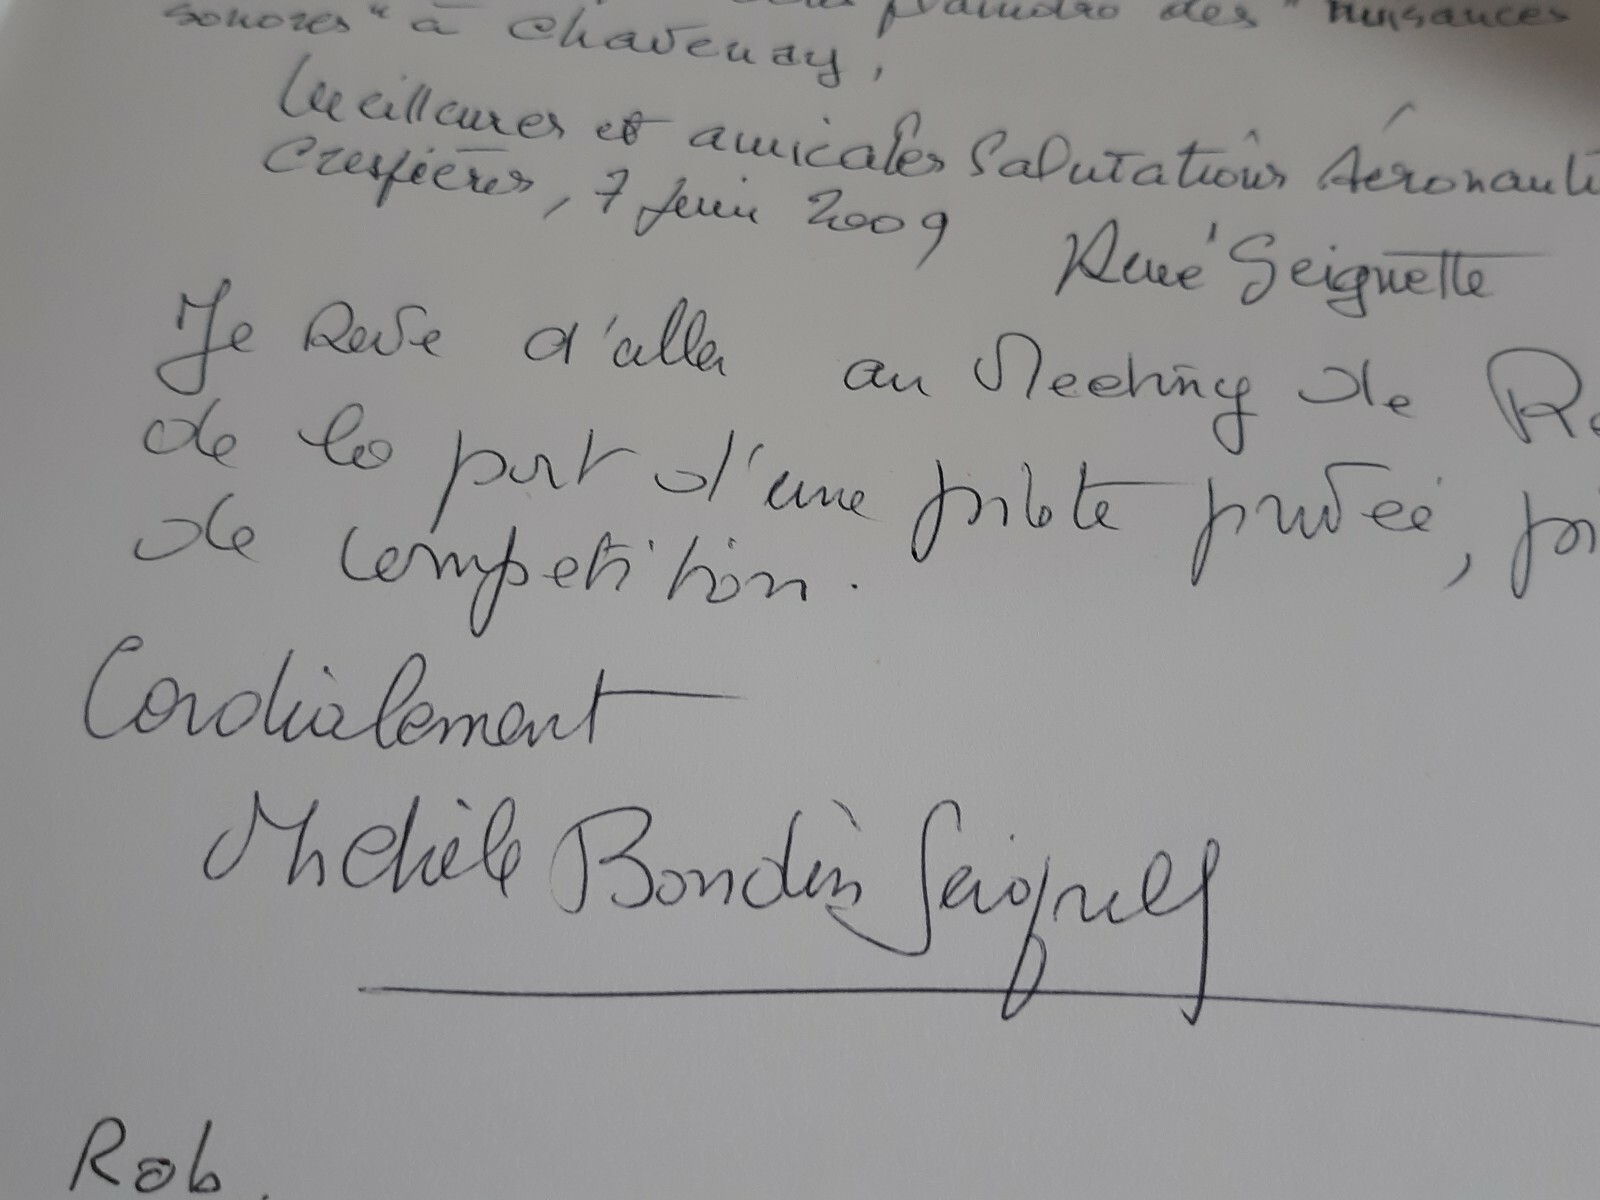 plaindre des "nuisances
sonores" à Chavenay,
Meilleures et amicales Salutations Aéronauti
Crespières, 7 Juin 2009
René Seignette
Je Reve d'aller au Meeting de Re
de la part d'une pilote privée, pi
de competition.
Cordialement
Michèle Bondin Seignette
Rob.